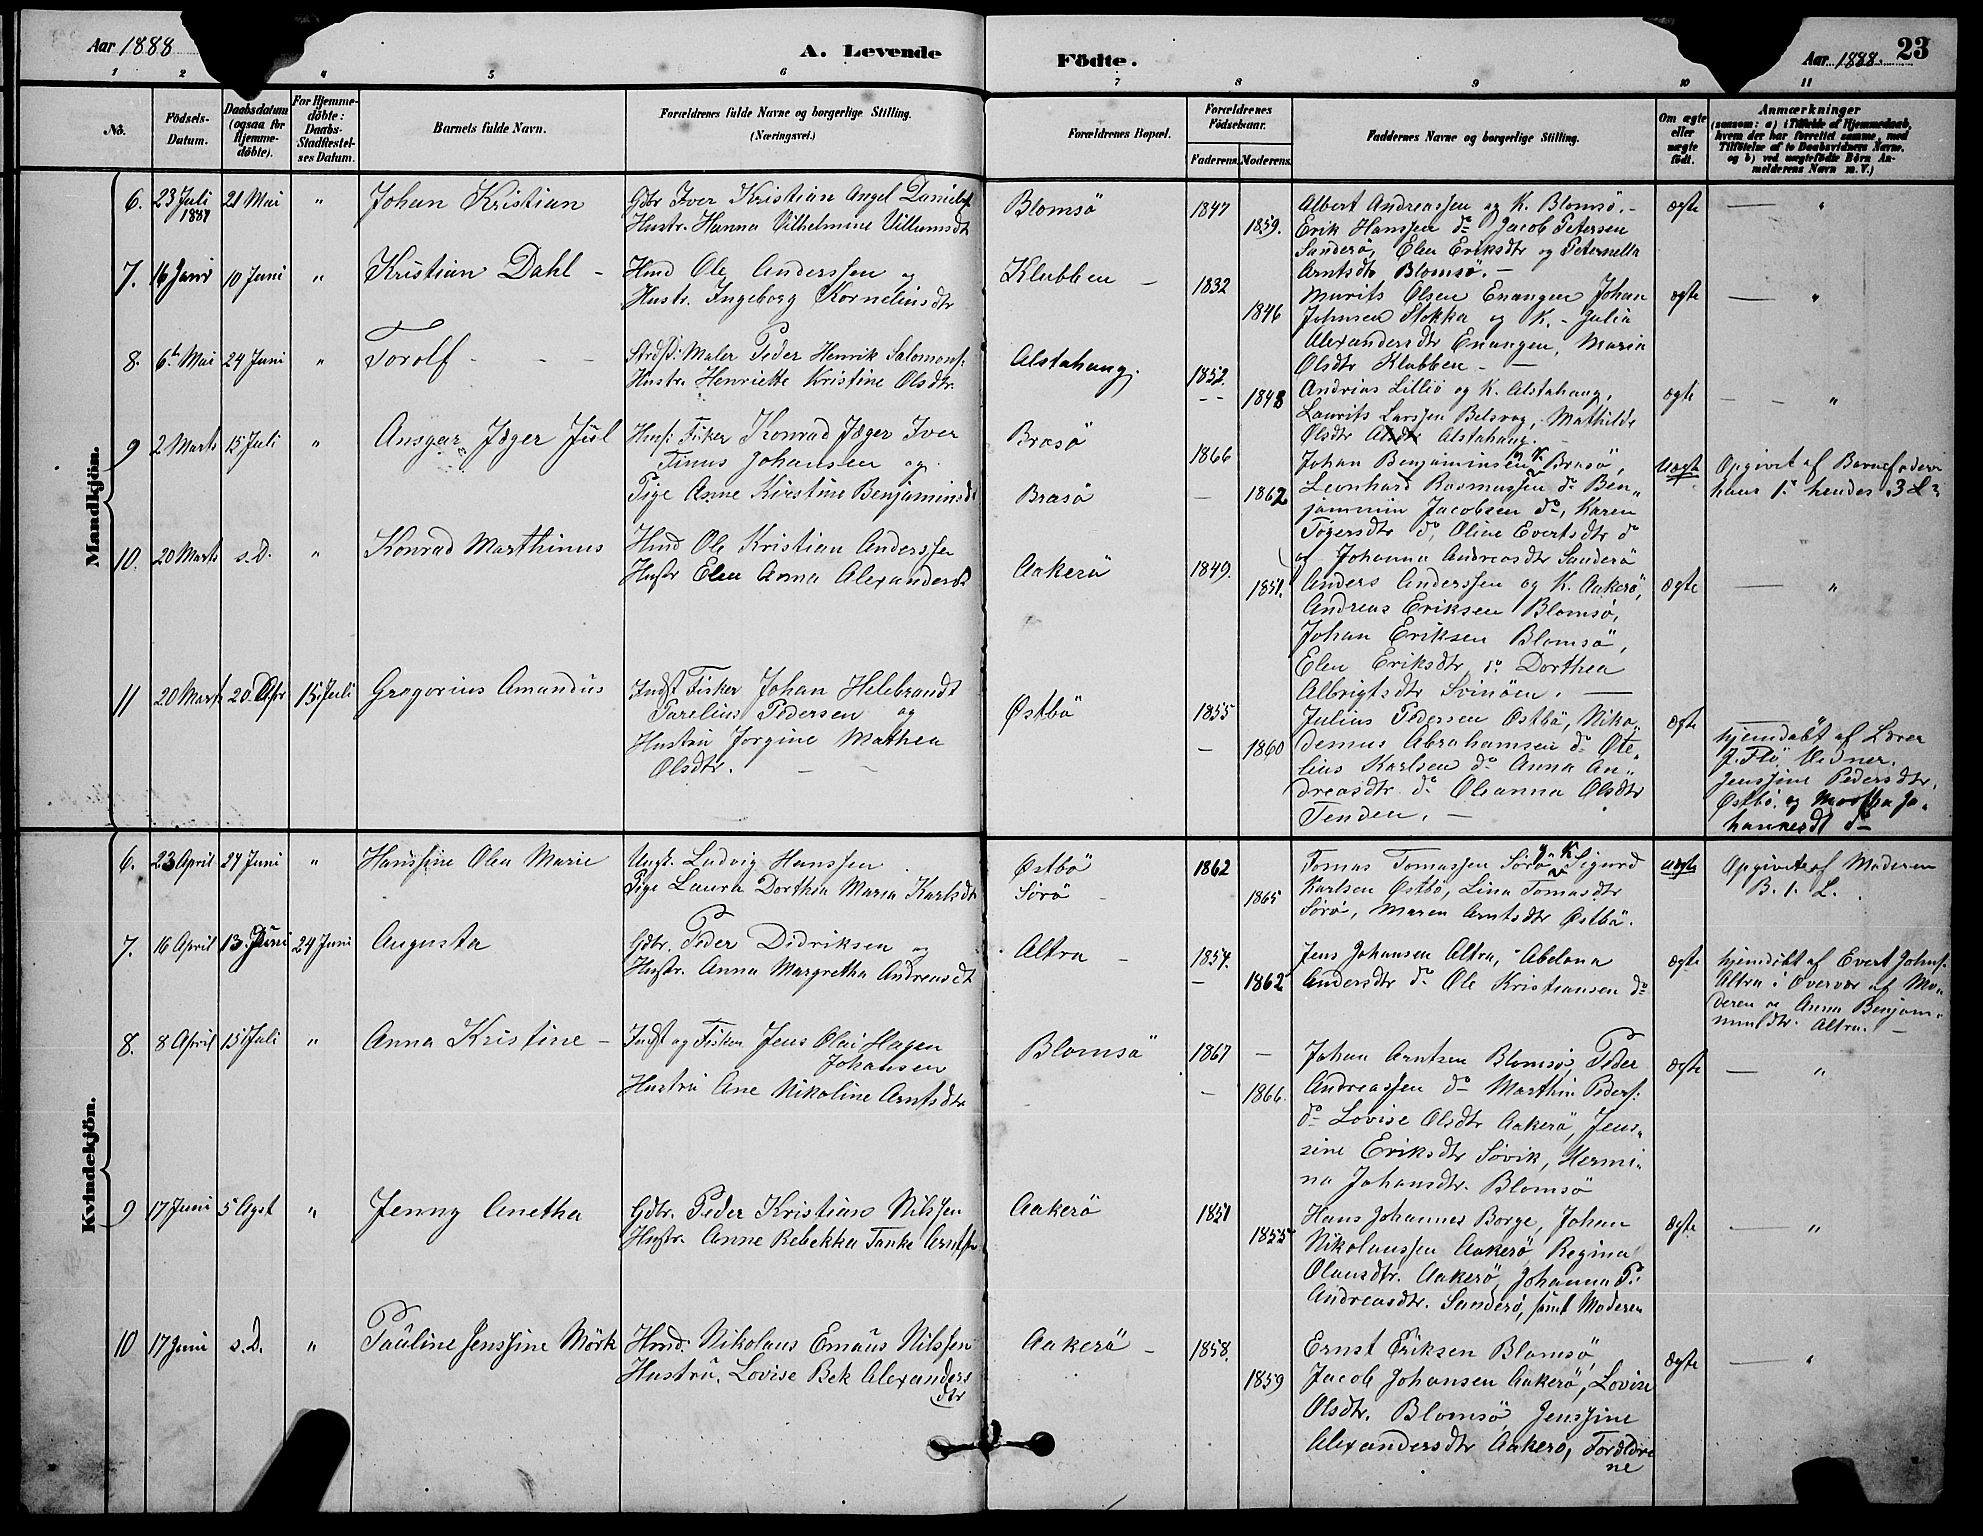 Aar 1888
A. Levende
Födte.
Aar 1888.
23
1 2 4 5 6 7 8 9 10 11
No.
Födsels-Datum.
Daabsdatum (ogsaa for Hjemme-döbte).
For Hjemme-döbte: Daabs-Stadfæstel-ses Datum.
Barnets fulde Navn.
Forældrenes fulde Navne og borgerlige Stilling. (Næringsvei.)
Forældrenes Bopæl.
Forældrenes Födselsaar.
Faderens. Moderens.
Faddernes Navne og borgerlige Stilling.
Om ægte eller uægte födt.
Anmærkninger
(saasom: a) i Tilfælde af Hjemmedaab, hvem der har forrettet samme, med Tilföielse af to Daabsvidners Navne, og b) ved uægtefödte Börn An-melderens Navn m. V.)
Mandkjön.
6. 23 Juli 1887 21 Mai " Johan Kristian
Gdbr Iver Kristian Angel Danielst
Hustr. Hanna Vilhelmine Villumsdt
Blomsö 1847 1859.
Albert Andreassen og K. Blomsö. -
Erik Hanssen do Jacob Petersen
Sanderö, Elen Eriksdtr og Peternella
Arntsdtr Blomsö. -
ægte — "
7. 16 Janr 10 Juni " Kristian Dahl -
Hmd Ole Anderssen og
Hustr. Ingeborg Korneliusdtr
Klubben - 1832 1846
Murits Olsen Enangen Johan
Johnsen Stokka og K. - Julia
Alexandersdtr Enangen, Maria
Olsdtr Klubben -
ægte — "
8. 6te Mai 24 Juni " Torolf - - -
Strdsd: Maler Peder Henrik Salomons:
Hustr. Henriette Kristine Olsdtr.
Alstahaug. 1852. 1848
Andrias Lilliö og K. Alstahaug,
Laurits Larssen Belsvog, Mathilde
Olsdtr Alstahaug.
ægte — "
9 2 Marts 15 Juli " Ansgar Jæger Jusl
Husf: Fisker Konrad Jæger Iver
Tinus Johansen og
Pige Anne Kirstine Benjaminsdt
Brasö
Brasö
1866 - 1862
Johan Benjaminsen og K. Brasö,
Leonhard Rasmussen do Ben„
jammin Jacobsen do, Karen
Tögersdtr do, Oline Evertsdtr do
og Johanna Andreasdtr Sanderö
Uægte
Opgivet af Barnefaderen
hans 1. hendes 3 L.
10. 20 Marts s.D. " Konrad Marthinus
Hmd Ole Kristian Anderssen
Hustr Elen Anna Alexandersdt
Aakerö 1849. 1851.
Anders Anderssen og K. Aakerö,
Andreas Eriksen Blomsö,
Johan Eriksen Blomsö,
Elen Eriksdtr, do Dorthea
Albrigtsdtr Svinöen. —
ægte — "
11 20 Marts 20 Apr 15 Juli Gregorius Amandus
Indst Fisker Johan Hilebrandt
Parelius Pedersen og
Hustru Jorgine Mathea
Olsdtr. - -
Östbö 1855 - 1860
Julius Pedersen Östbö, Niko„
demus Abrahamsen do Ote„
lius Karlsen do Anna An„
dreasdtr do Oleanna Olsdtr
Tenden. -
ægte
hjemdöbt af Lærer
J. Flö Vedner.
Jenssine Pedersdtr,
Östbö og Martha Jo„
hannesdt do
Kvindekjön.
6. 23 April 24 Juni " Hanssine Olea Marie
Ungk. Ludvig Hanssen
Pige Laura Dorthea Maria Karlsdtr
Östbö
Sörö
1862 1865
Tomas Tomassen Sörö og K. Sigurd
Karlsen Östbö, Lina Tomasdtr
Sörö, Maren Arntsdtr Östbö.
uægte
Opgivet af Moderen
B. 1. L.
7. 16 April 13. Juni 24 Juni Augusta
Gdbr. Peder Didriksen og
Hustr. Anna Margretha Andreasdt
Altra - 1854. - 1862
Jens Johansen Altra, Abelona
Andersdtr do Ole Kristiansen do
ægte
hjemdöbt af Evert Johns.
Altra i Overvær af Mo„
deren og Anna Benjam„
minsdtr. Altra. -
8. 8 April 15 Juli " Anna Kristine -
Indst og Fisker Jens Olai Hagen
Johansen
Hustru Ane Nikoline Arntsdtr
Blomsö 1867 - 1866.
Johan Arntsen Blomsö, Peder
Andreassen do Marthin Peders:
do Lovise Olsdtr Aakerö, Jens„
sine Eriksdtr Sövik, Hermi„
na Johansdtr. Blomsö
ægte — "
9 17 Juni 5 Agst " Jenny Anetha
Gdbr. Peder Kristian Nilssen
Hustr. Anne Rebekka Tanke Arntsdtr
Aakerö 1851 1855
Hans Johannes Borge, Johan
Nikolaussen Aakerö Regina
Olausdtr. Aakerö, Johanna P.
Andreasdtr. Sanderö, samt Moderen
ægte — "
10 17 Juni s.D. " Pauline Jenssine Mörk
Hmd. Nikolaus Emaus Nilssen
Hustru. Lovise Bek Alexanders
dtr
Aakerö - 1858. 1859
Ernst Eriksen Blomsö
Jacob Johansen Aakerö, Lovise
Olsdtr. Blomsö Jenssine
Alexandersdtr Aakerö, Forældre
ne
ægte — "